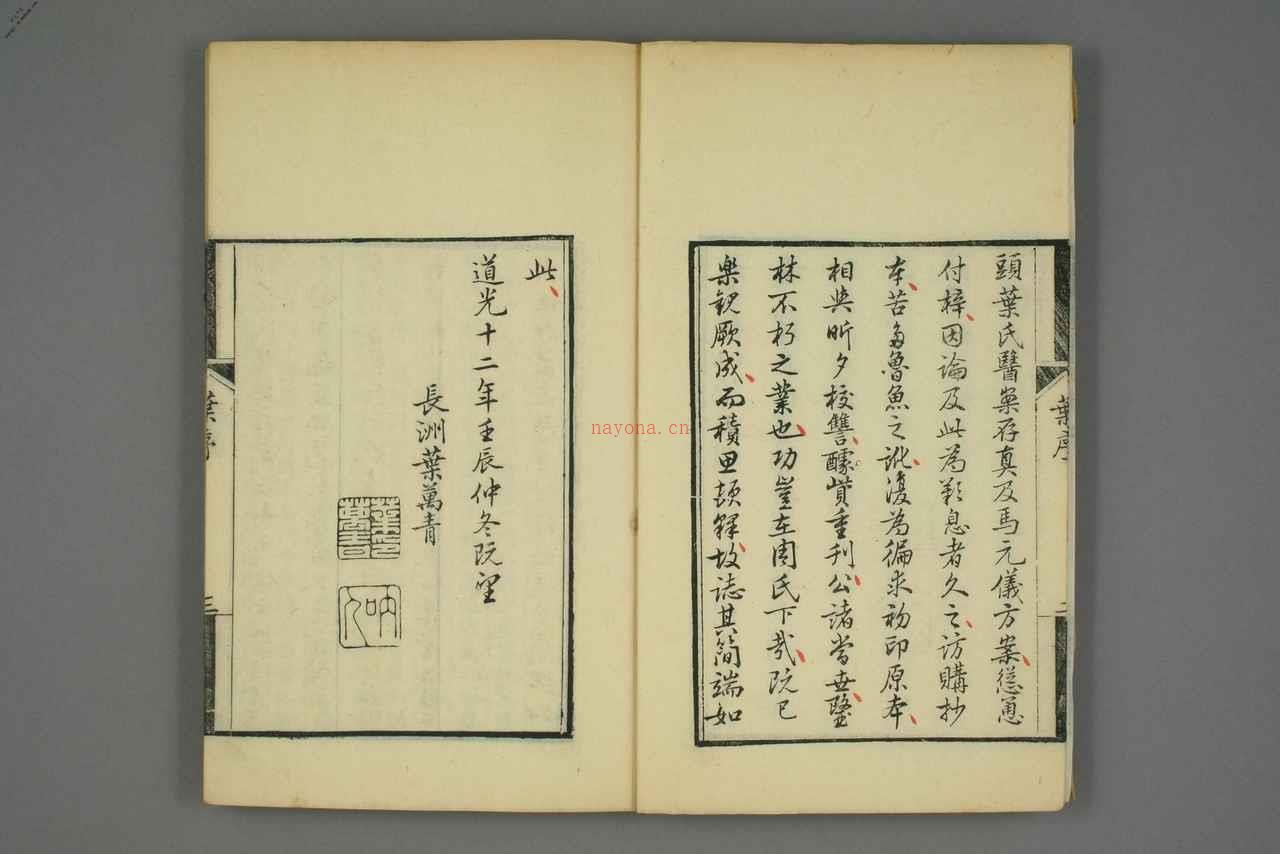 頭葉氏醫案存真及馬元儀方案慫恿
付梓因論及此為歎息者久之訪購抄
本苦多魯魚之訛復為徧求初印原本
相與昕夕校讐醵貲重刊公諸當世醫
林不朽之業也功豈在周氏下哉既已
樂觀厥成而積思頓釋故誌其簡端如
葉序
此
道光十二年壬辰仲冬既望
長洲葉萬青
葉序
三
nayona.cn